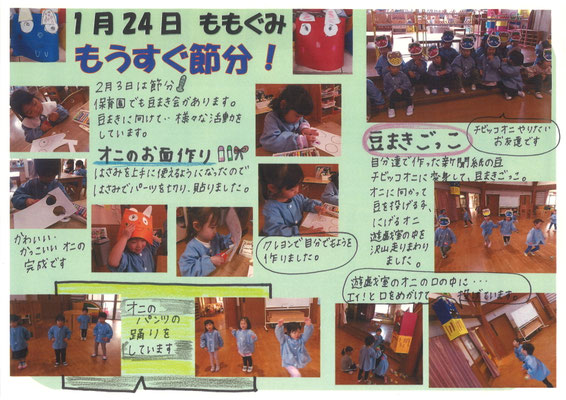 1月24日 ももぐみ
もうすぐ節分！
2月3日は節分
保育園でも豆まき会があります。
豆まきに向けて・・様々な活動を
しています。
オニのお面作り
はさみを上手に使えるようになったので
はさみでパーツを切り、貼りました。
かわいい・
かっこいい オニの
完成です
クレヨンで自分でもようを
作りました。
オニの
パンツの
踊りを
しています
チビッコオニやりたい
お友達です
豆まきごっこ
自分達で作った新聞紙の豆
チビッコオニに変身して、豆まきごっこ。
オニに向かって
豆を投げる子、
にげるオニ
遊戯室の中を
沢山走りまわり
ました。
遊戯室のオニの口の中に・・・
エイ！と口をめがけて 投げています。